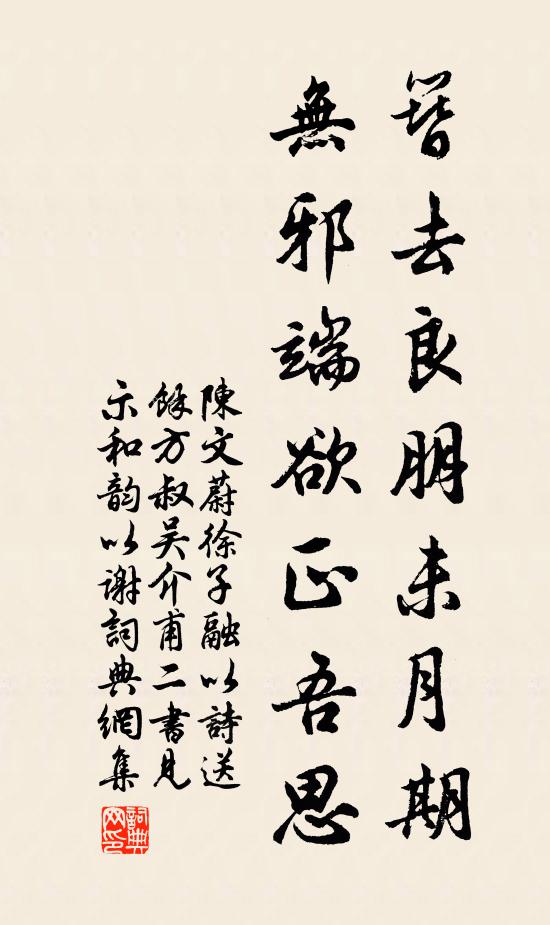 簪去良朋未月期
無邪端欲正吾思
陳文蔚徐子融以詩送
餘方叔吴介甫二書見
示和韵以謝詞典網集
詞典网印